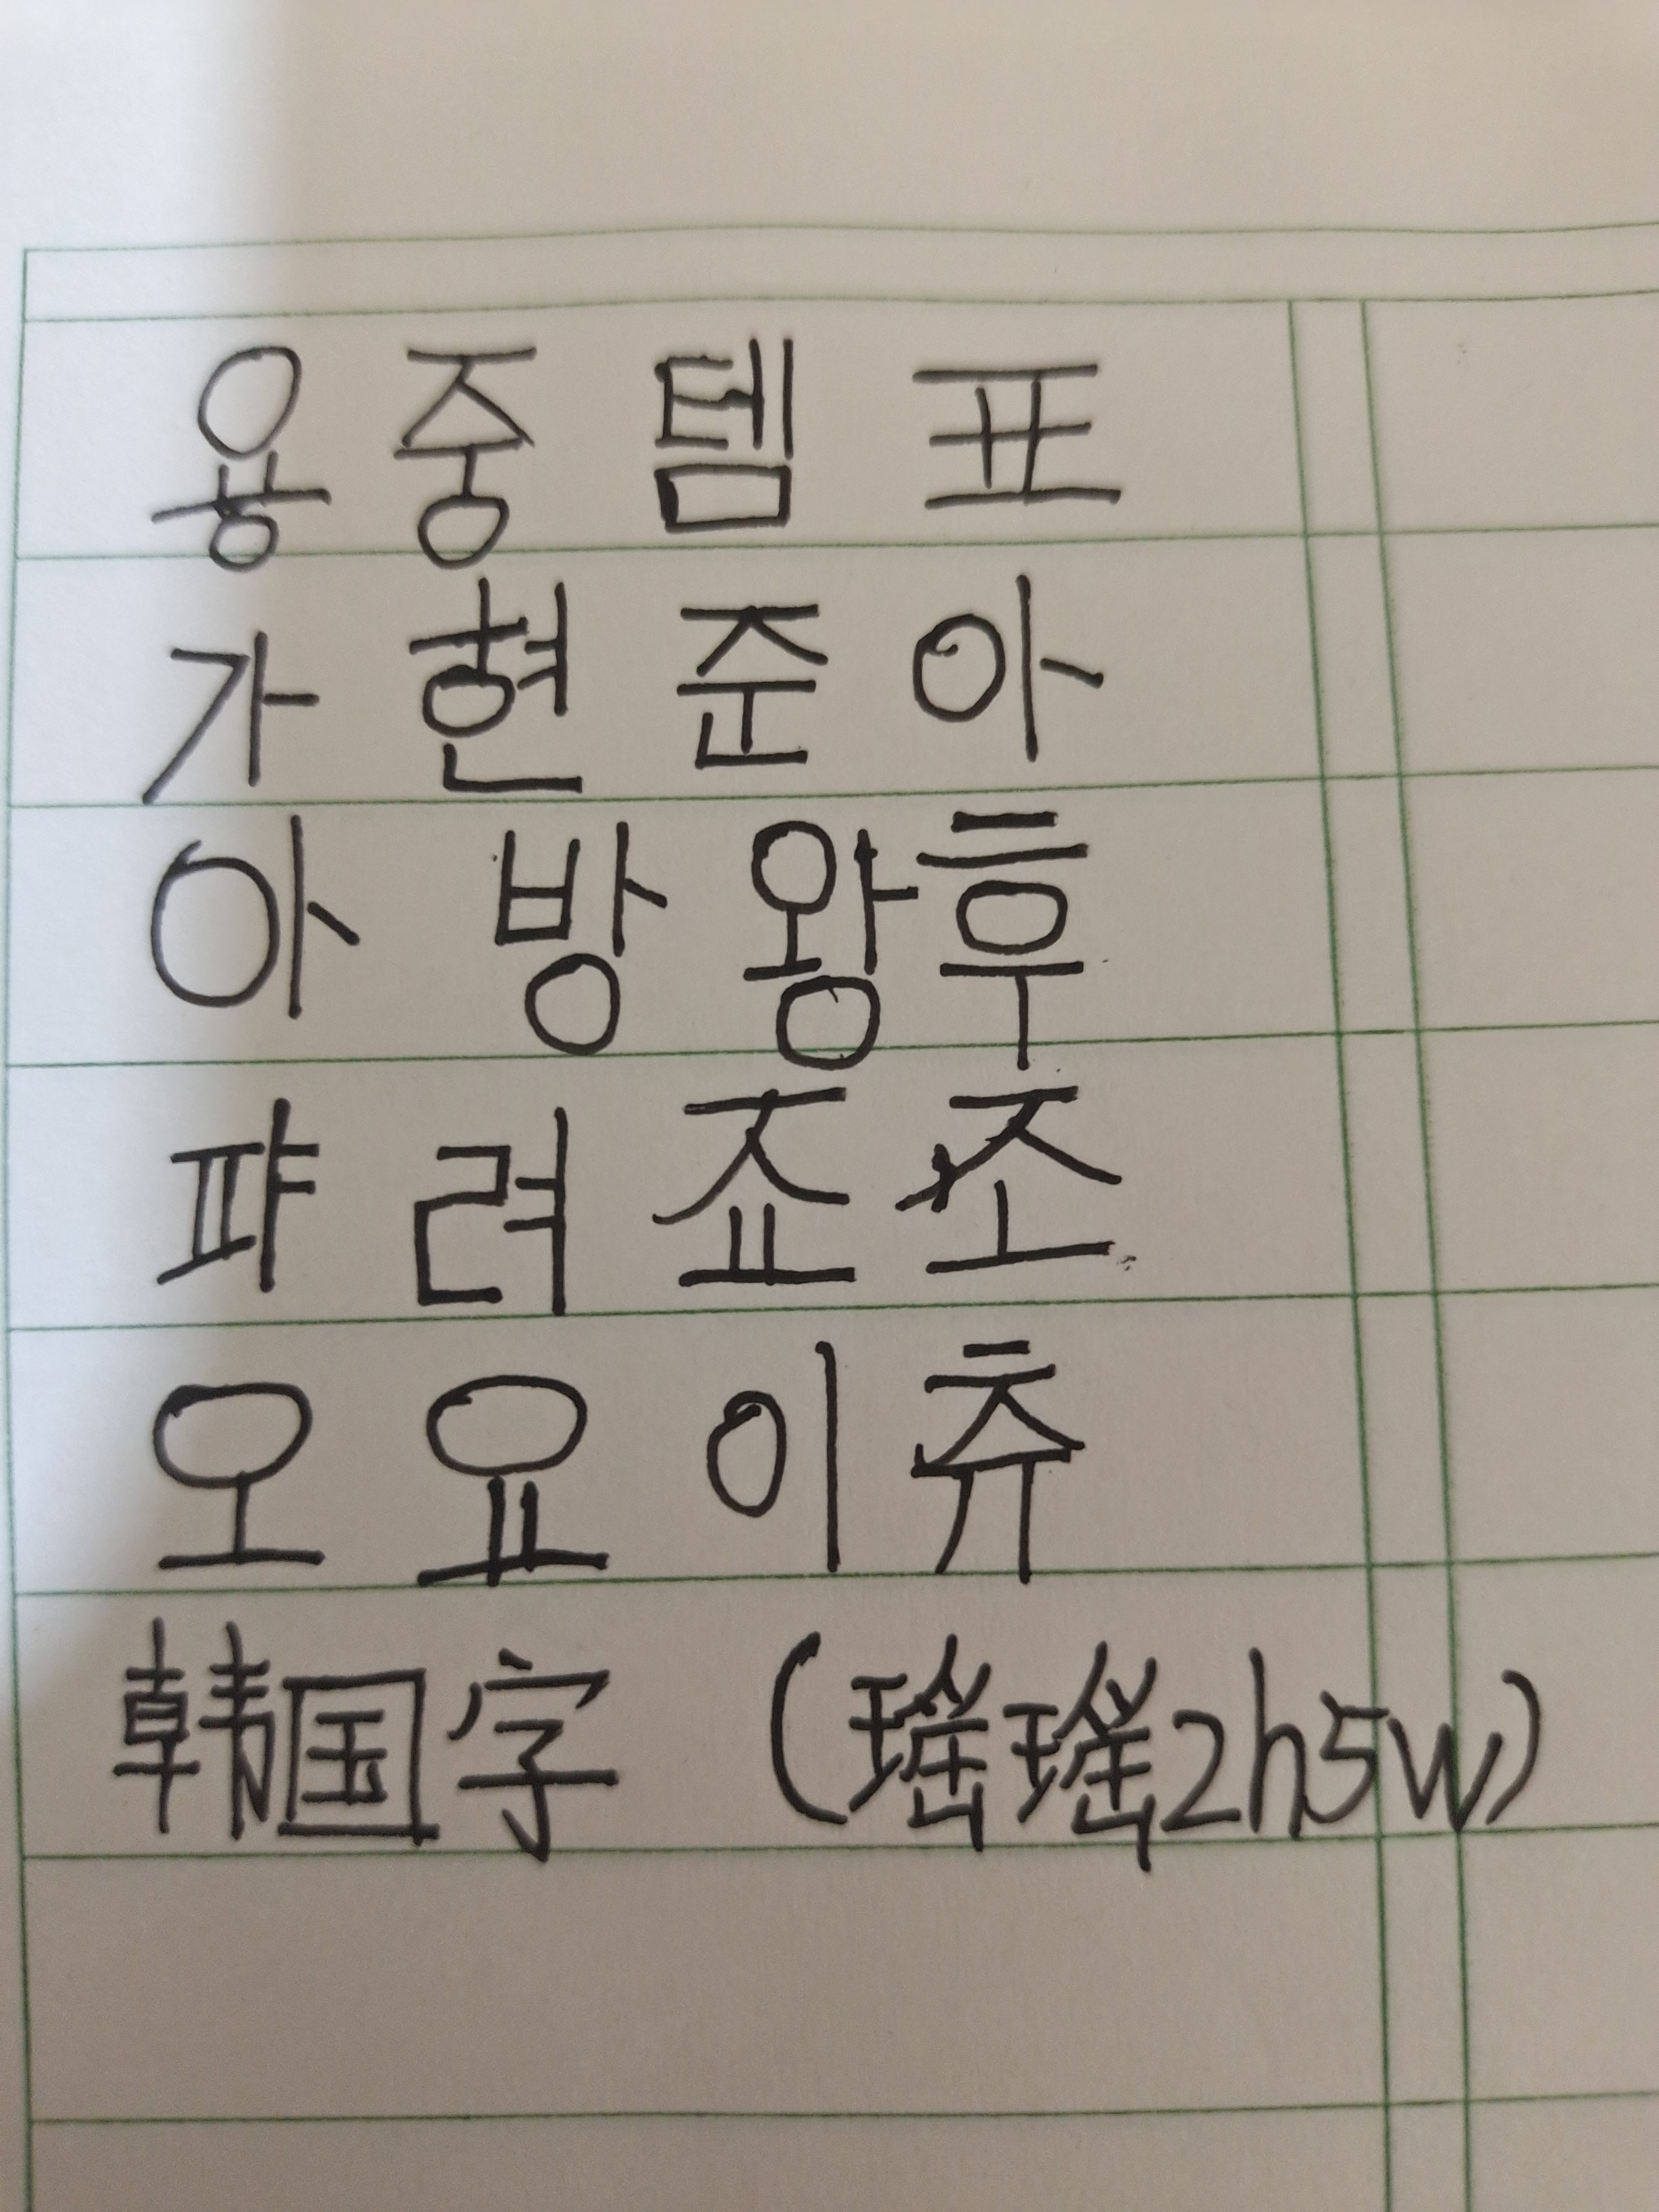 용 중 템 표
가 현 준 아
아 방 왕 후
퍄 려 죠 조
오 요 이 츄
韩国字 (瑶瑶2h5w)